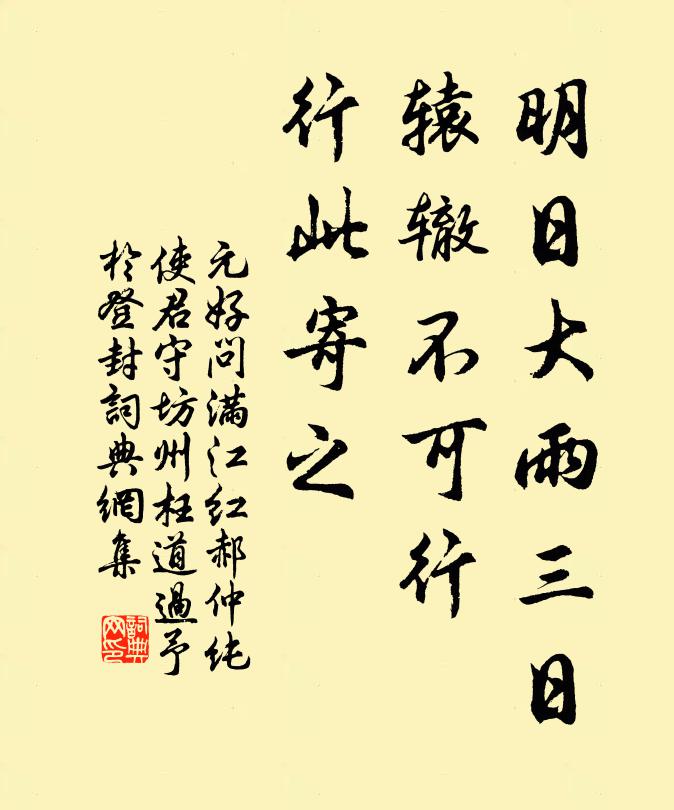 明日大雨三日
辕辙不可行
行此寄之
元好问满江红郝仲纯
使君守坊州枉道過予
於登封詞典網集
詞典
网印